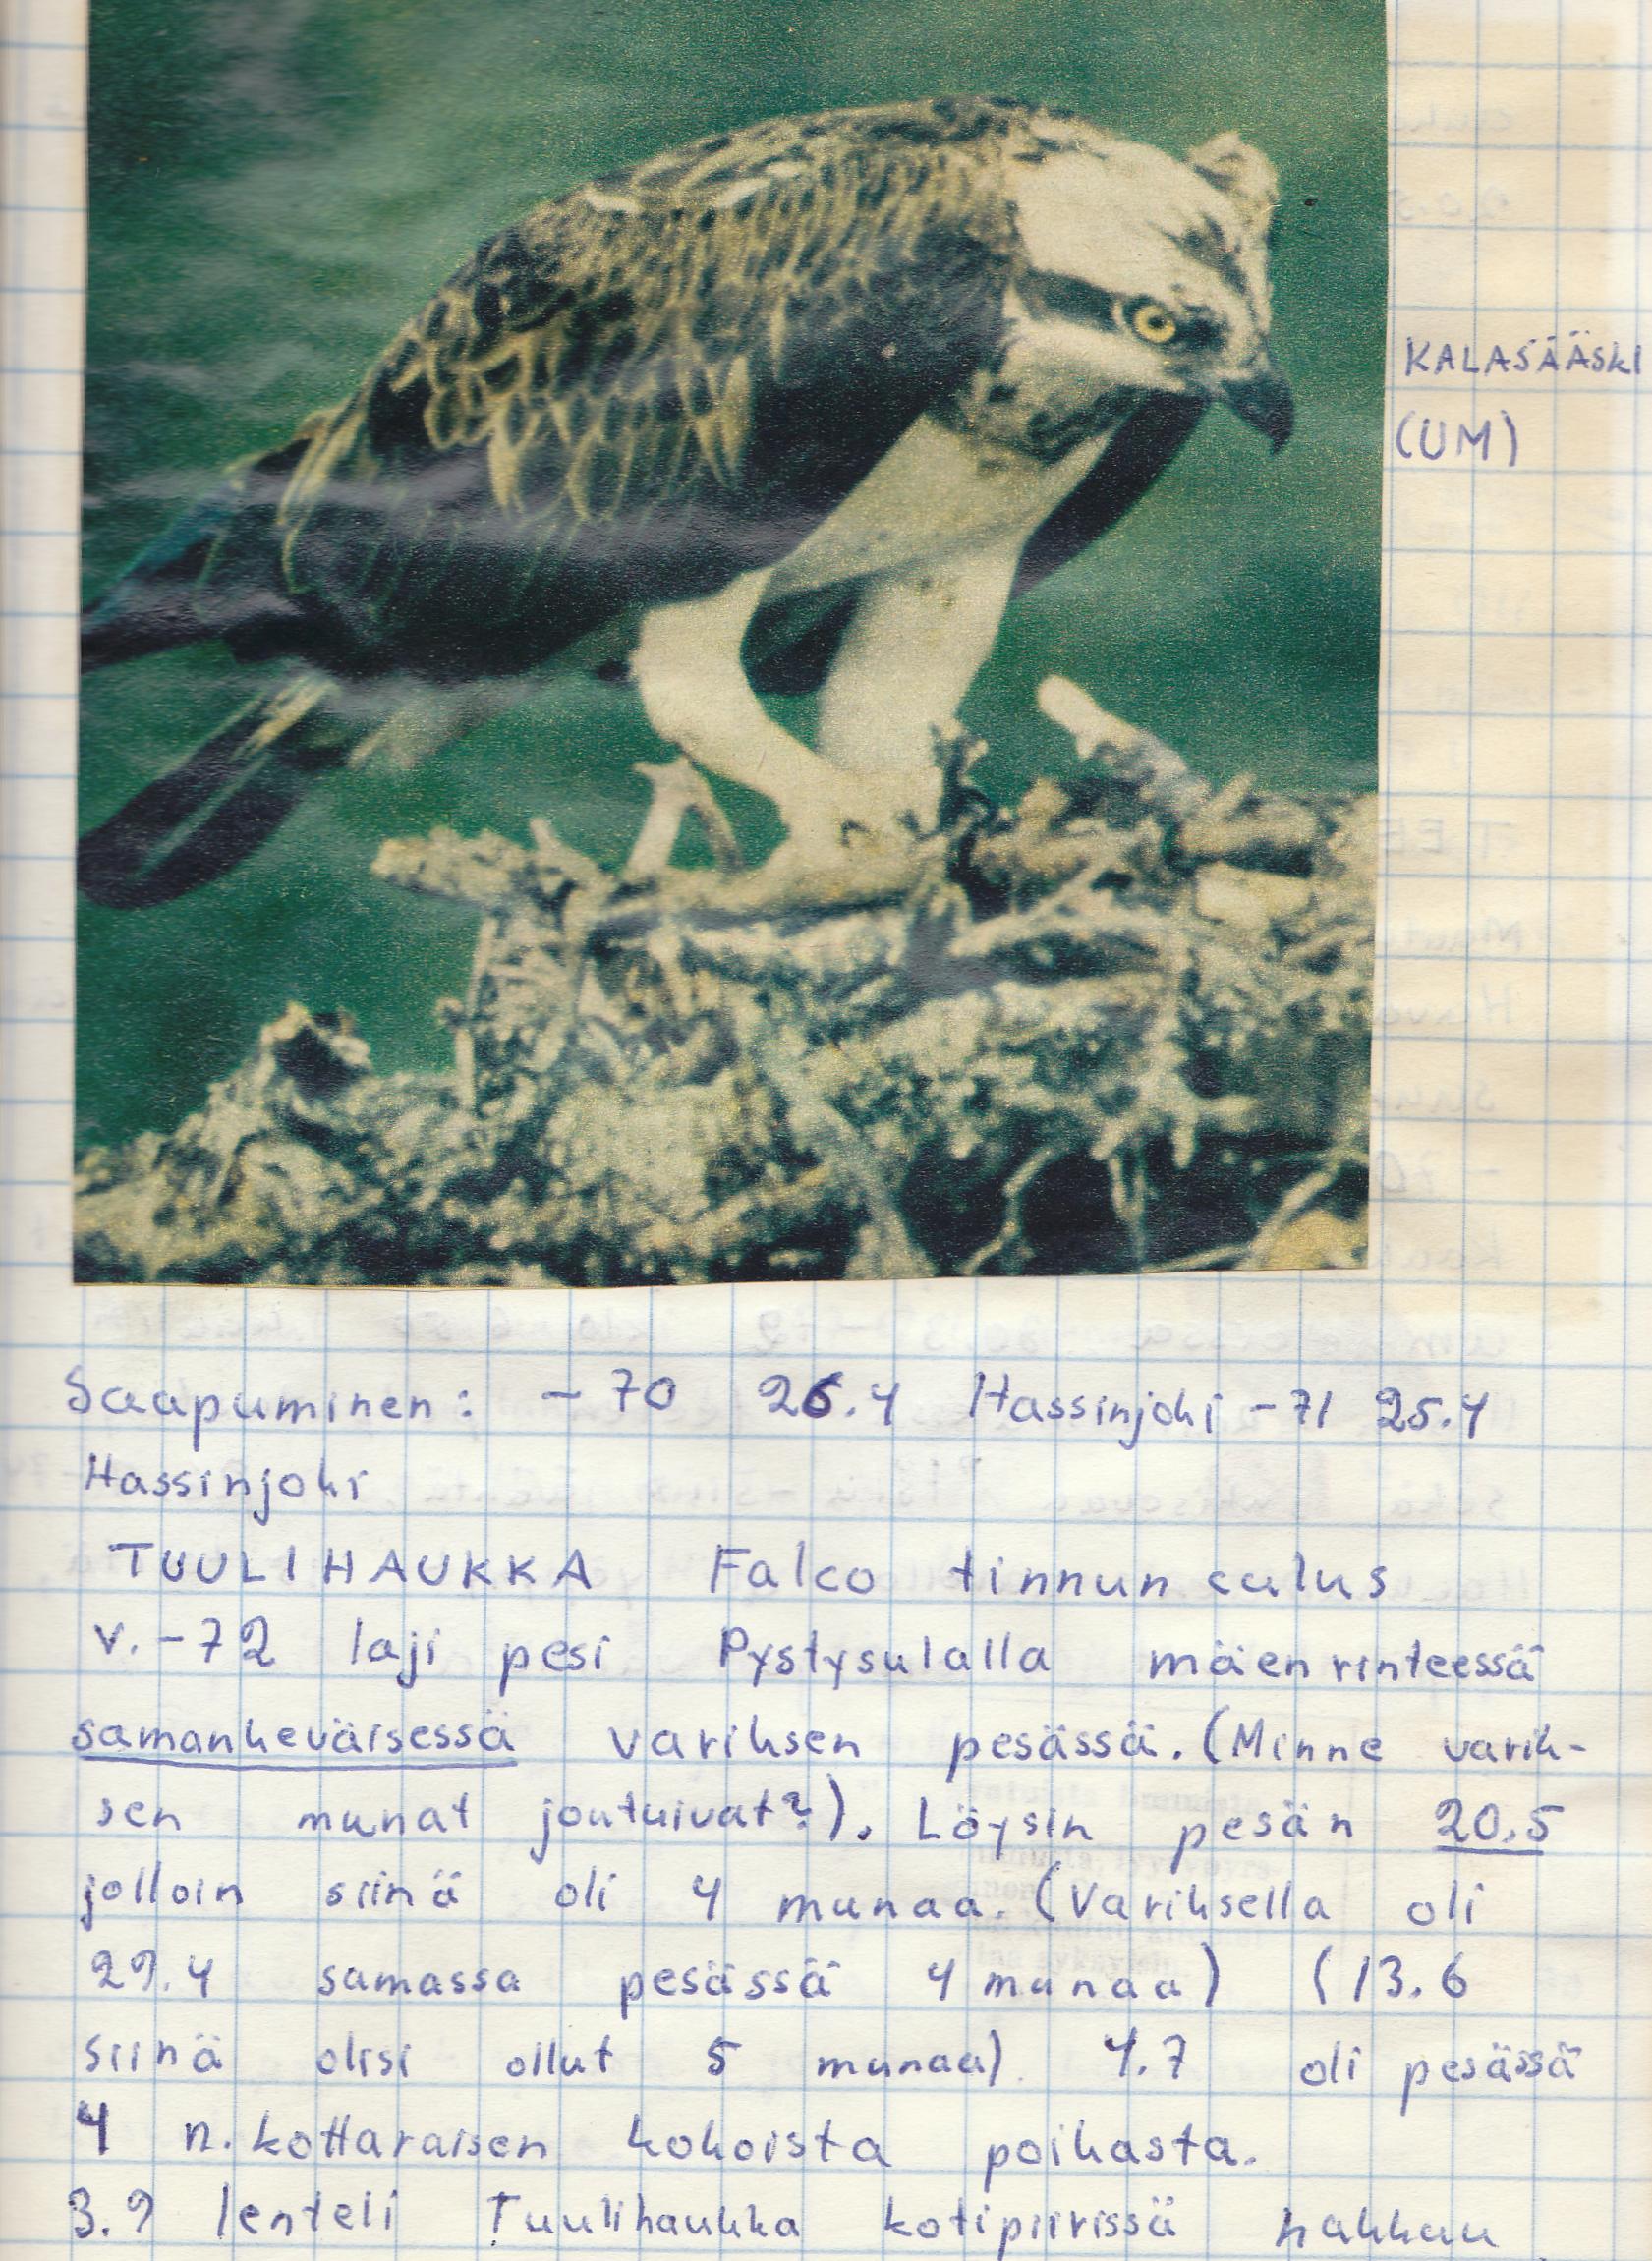 KALASÄÄSKI
(UM)
Saapuminen: -70 26.4 Hassinjoki -71 25.4
Hassinjoki
TUULIHAUKKA Falco tinnunculus
v. -72 laji pesi Pystysulalla mäenrinteessä
samankeväisessä variksen pesässä. (Minne varik-
sen munat joutuivat?). Löysin pesän 20.5
jolloin siinä oli 4 munaa. (Variksella oli
29.4 samassa pesässä 4 munaa) (13.6
siinä olisi ollut 5 munaa) 4.7 oli pesässä
4 n. kottaraisen kokoista poikasta.
3.9 lenteli Tuulihaukka kotipiirissä hakkuu